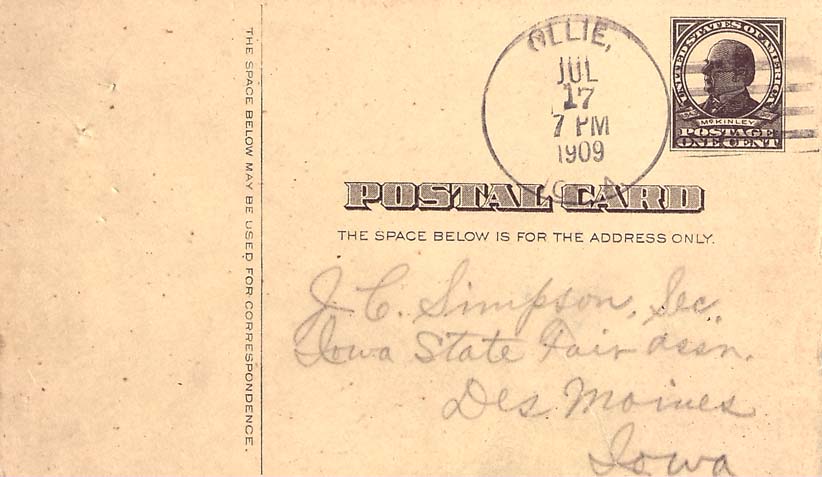 THE SPACE BELOW MAY BE USED FOR CORRESPONDENCE.
OLLIE,
JUL
17
7 PM
1909
IOWA
UNITED STATES OF AMERICA
McKINLEY
POSTAGE
ONE CENT
POSTAL CARD
THE SPACE BELOW IS FOR THE ADDRESS ONLY.
J. C. Simpson, Sec.
Iowa State Fair assn.
Des Moines
Iowa